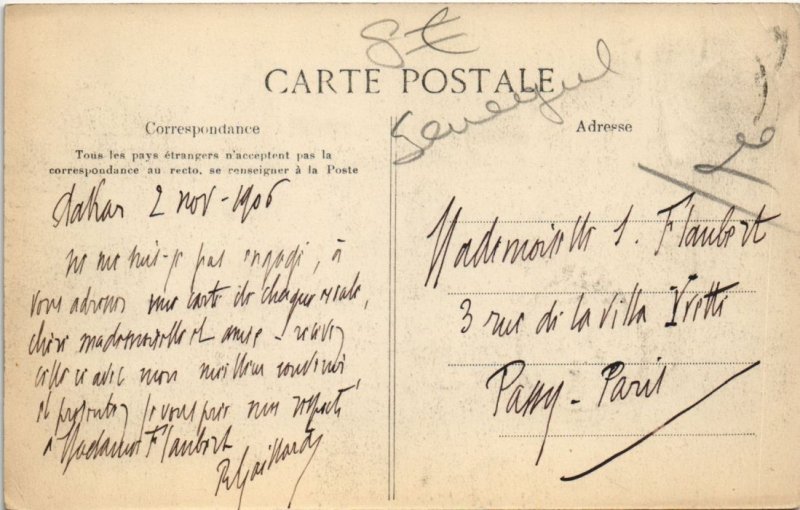 CARTE POSTALE
Correspondance
Tous les pays étrangers n'acceptent pas la
correspondance au recto, se renseigner à la Poste
Dakar 2 nov - 1906
ne me suis-je pas engagé, à
vous adresser une carte de chaque escale,
chère mademoiselle et amie - recevez
celle ci avec mon meilleur souvenir
et présentez je vous prie mes respects
à Madame Flaubert
R Gaillard
Senegal
Adresse
Mademoiselle S. Flaubert
3 rue de la villa Yvette
Passy - Paris